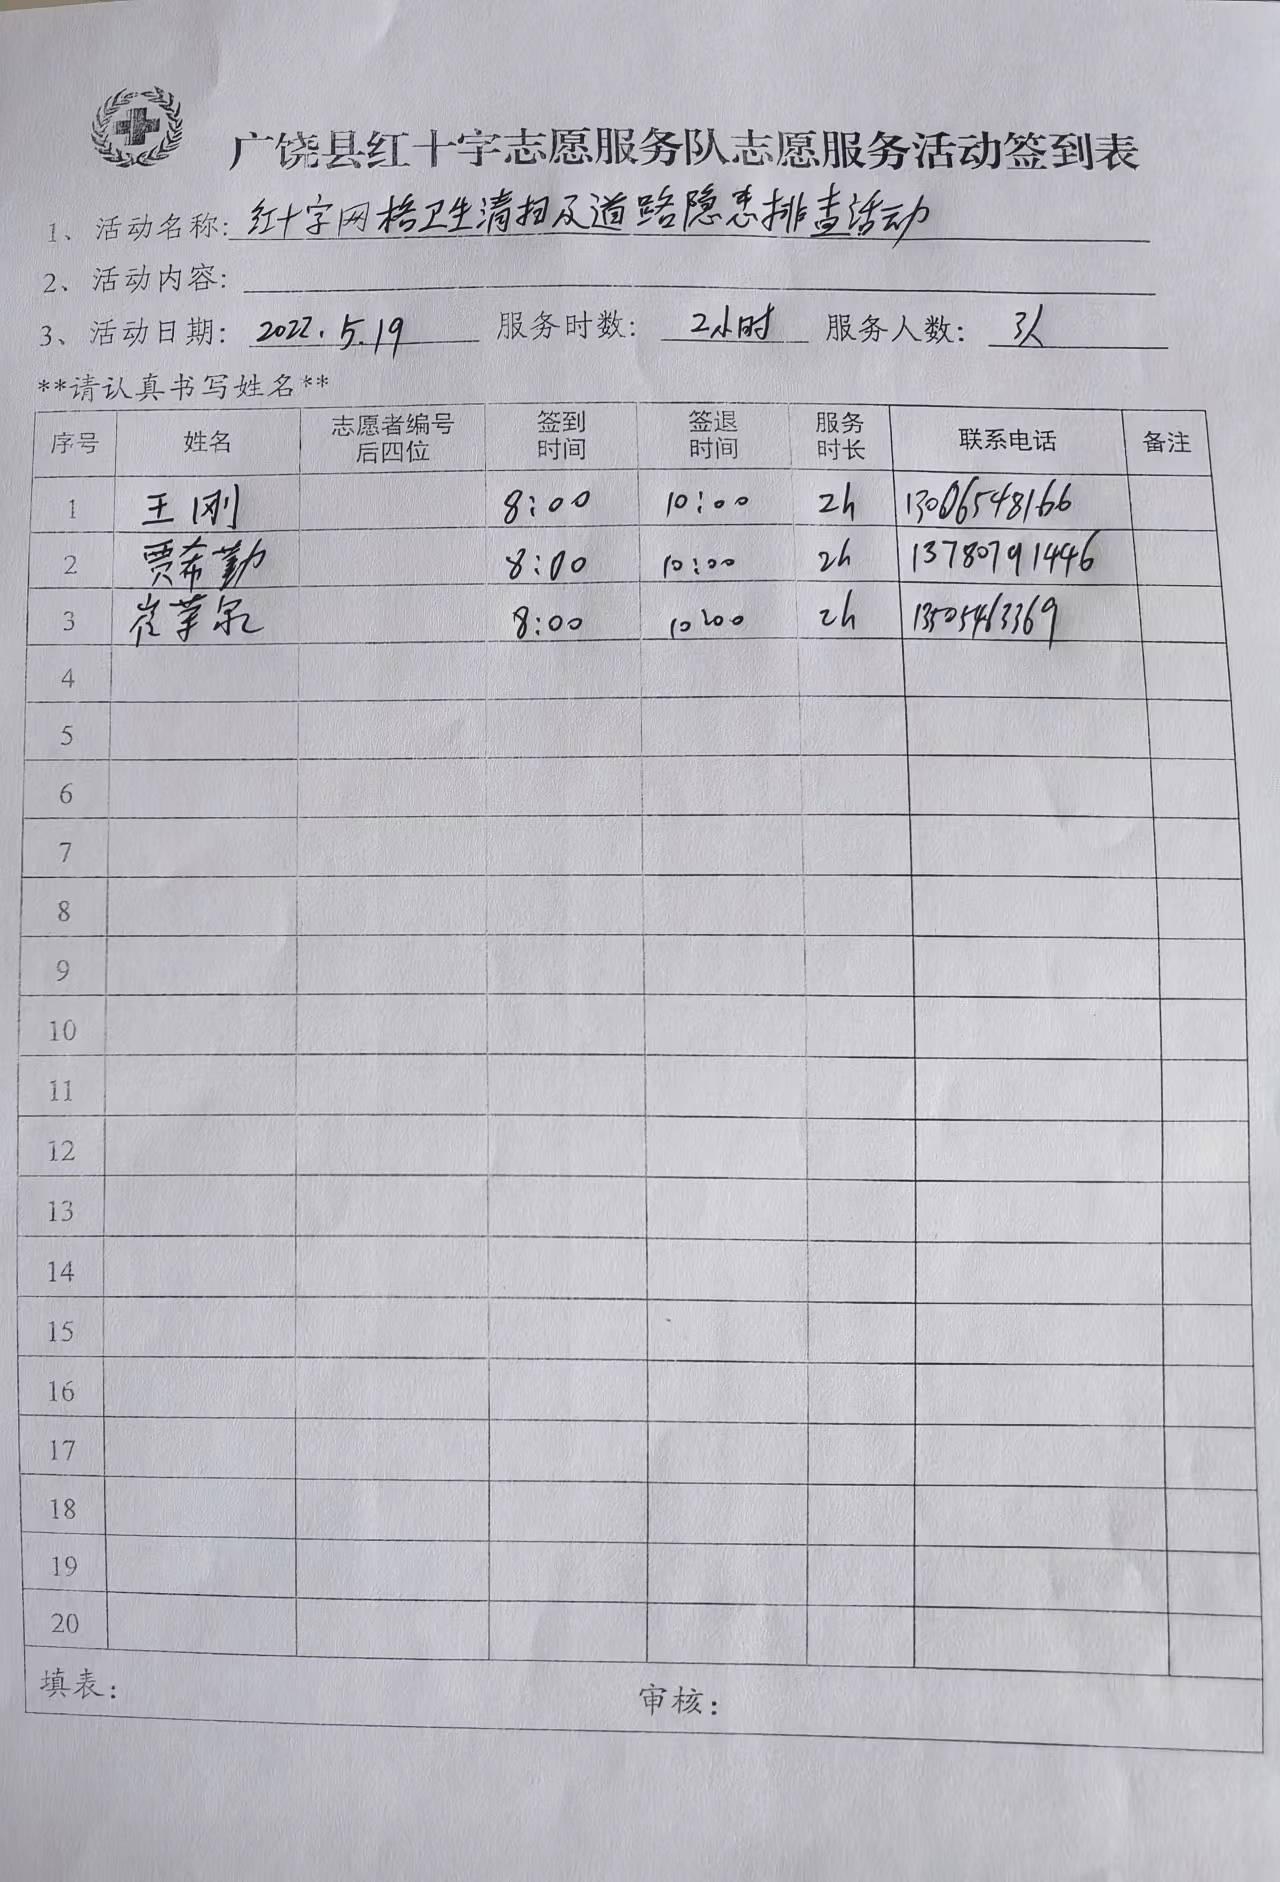 广饶县红十字志愿服务队志愿服务活动签到表
1、活动名称：红十字网格卫生清扫及道路隐患排查活动
2、活动内容：
3、活动日期：2022.5.19 服务时数：2小时 服务人数：3人
**请认真书写姓名**
序号 姓名 志愿者编号后四位 签到时间 签退时间 服务时长 联系电话 备注
1 王刚 8:00 10:00 2h 13006548166
2 贾希勤 8:00 10:00 2h 13780791446
3 崔 8:00 10:00 2h 13505463369
4
5
6
7
8
9
10
11
12
13
14
15
16
17
18
19
20
填表： 审核：